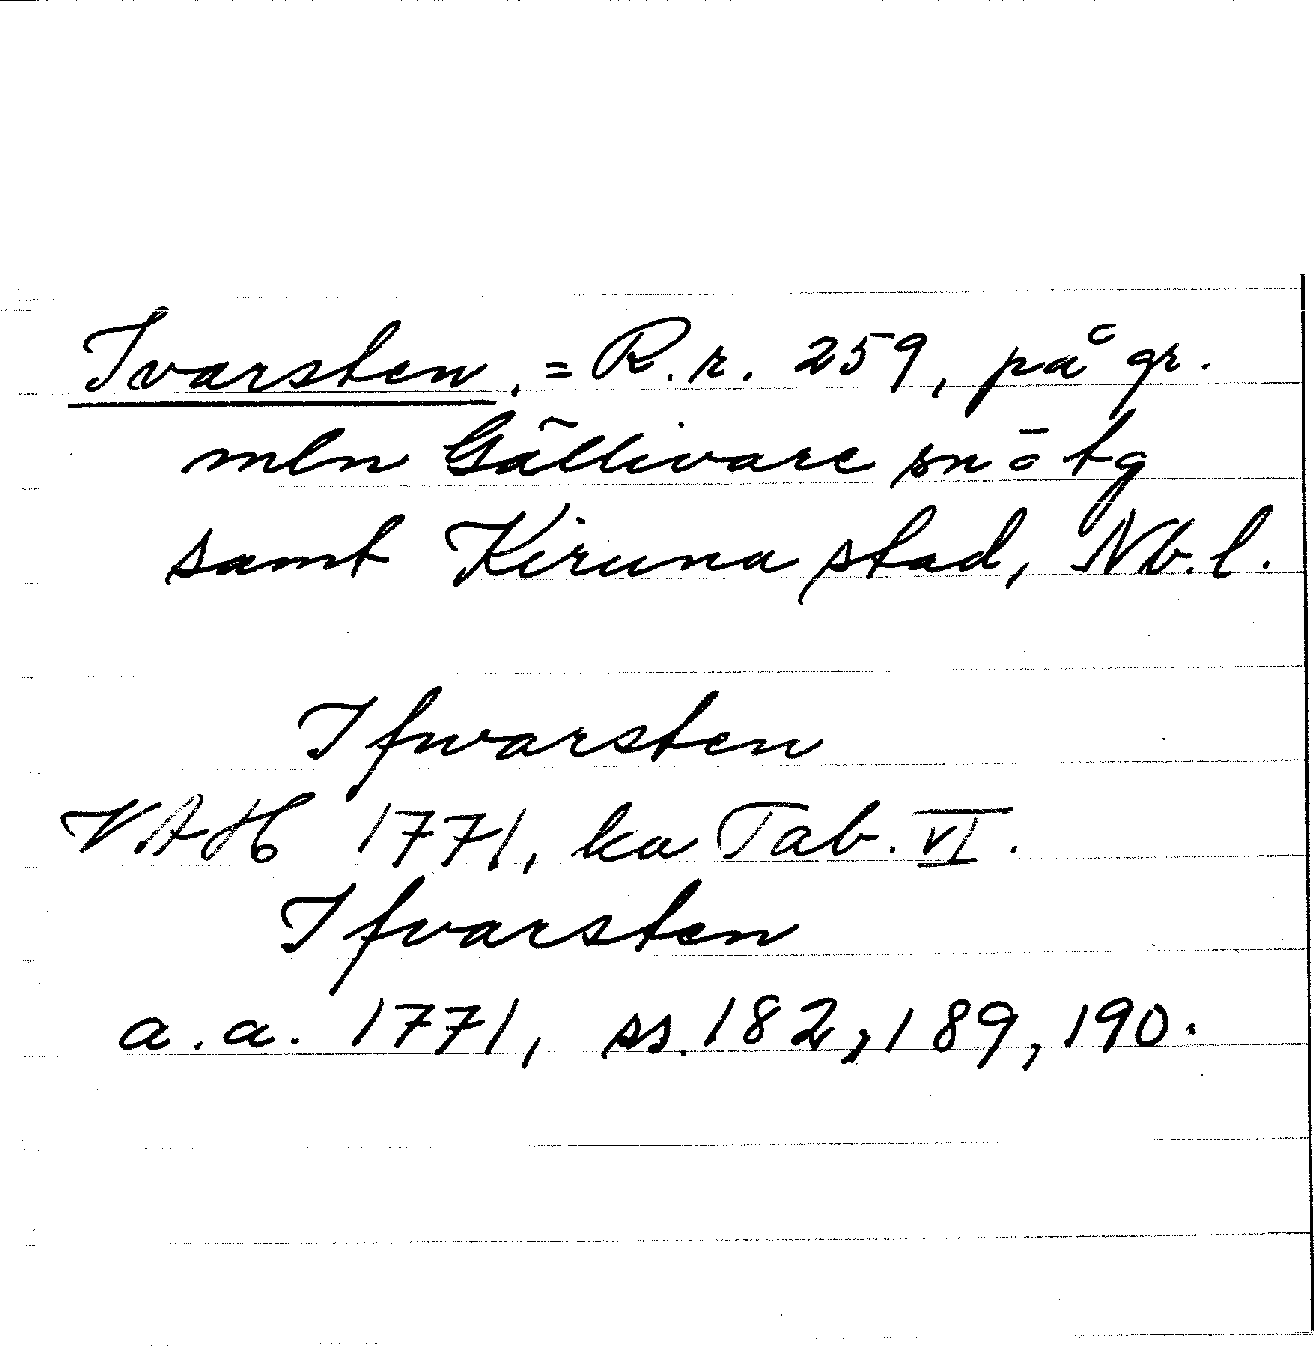 Ivarsten, = R.r. 259, på gr.
mln Gällivare sn ō tg
samt Kiruna stad, Nb.l.
Ifwarsten
VAH 1771, ka Tab. VI.
Ifvarsten
a.a. 1771, ss. 182, 189, 190.